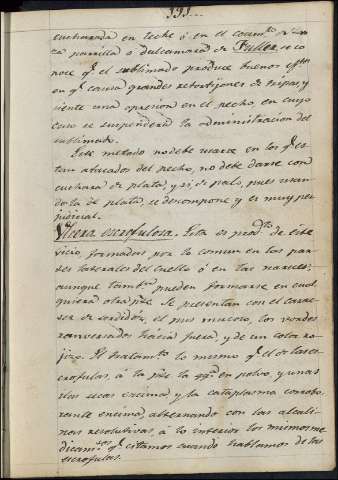 191..
cucharada en leche ó en el cocimto
parrilla o dulcamara de Fuller. se co
noce qe. el sublimado produce buenos eftos
en qe. causa grandes retortijones de tripas, y
siente una opresion en el pecho, en cuyo
caso se suspenderá la administracion del
sublimado.
Este metodo no debe usarse en los qe. es
tan atacados del pecho, no debe darse con
cuchara de plata, y si, de palo, pues usan
dola de plata se descompone y es muy per
judicial.
Ulcera escrofulosa. Esta es prodto. de este
vicio, formadas por lo comun en las par
tes laterales del cuello ó en las narices,
aunque tambn. pueden formarse en cual
quiera otra pte. Se presentan con el carac
ter de sordidez, el pus mucoso, los vordes
renversados hácia fuera, y de un color ro
jizo. El tratamto. lo mismo qe. el de las es
crofulas, á la pte. la en polvo, y unas
ilas secas encima y la cataplasma corrobo
rante encima, alternando con las alcali
nas resolutivas, á lo interior los mismos me
dicamtos. qe. citamos cuando hablamos de las
escrofulas.